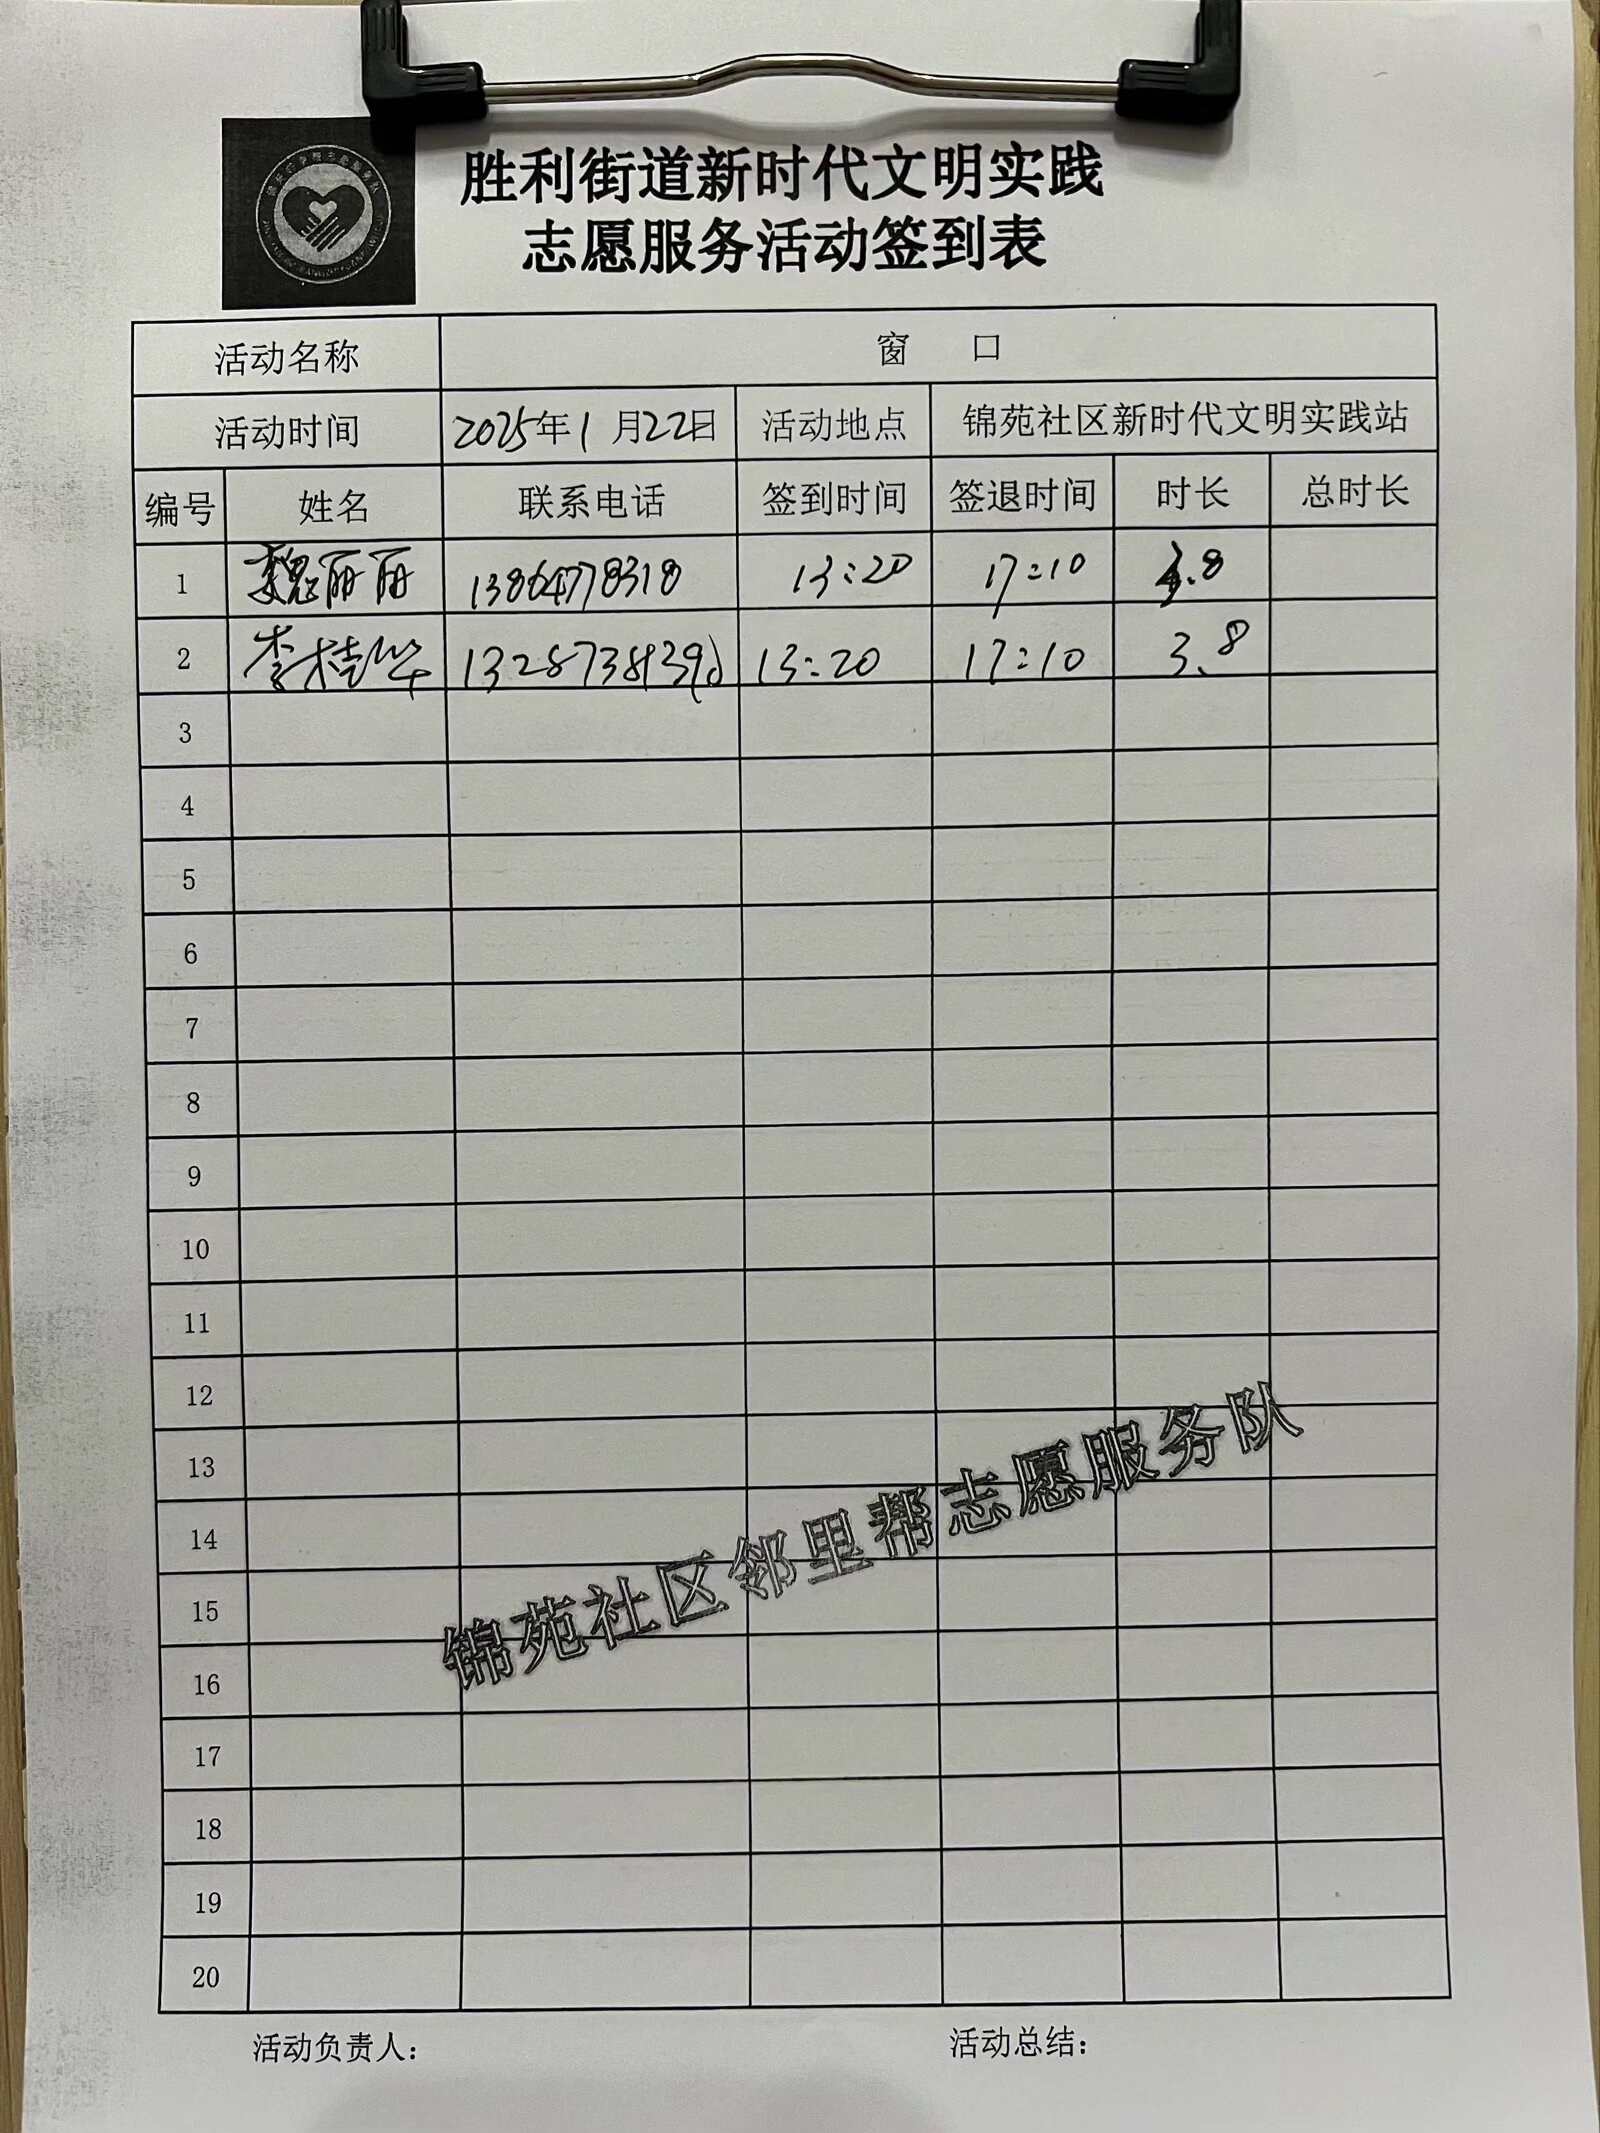 胜利街道新时代文明实践
志愿服务活动签到表
活动名称 窗 口
活动时间 2025年1月22日 活动地点 锦苑社区新时代文明实践站
编号 姓名 联系电话 签到时间 签退时间 时长 总时长
1 魏丽丽 13864778318 13:20 17:10 3.8
2 李桂华 13:20 17:10 3.8
3
4
5
6
7
8
9
10
11
12
13
14
15
16
17
18
19
20
锦苑社区邻里帮志愿服务队
活动负责人: 活动总结: